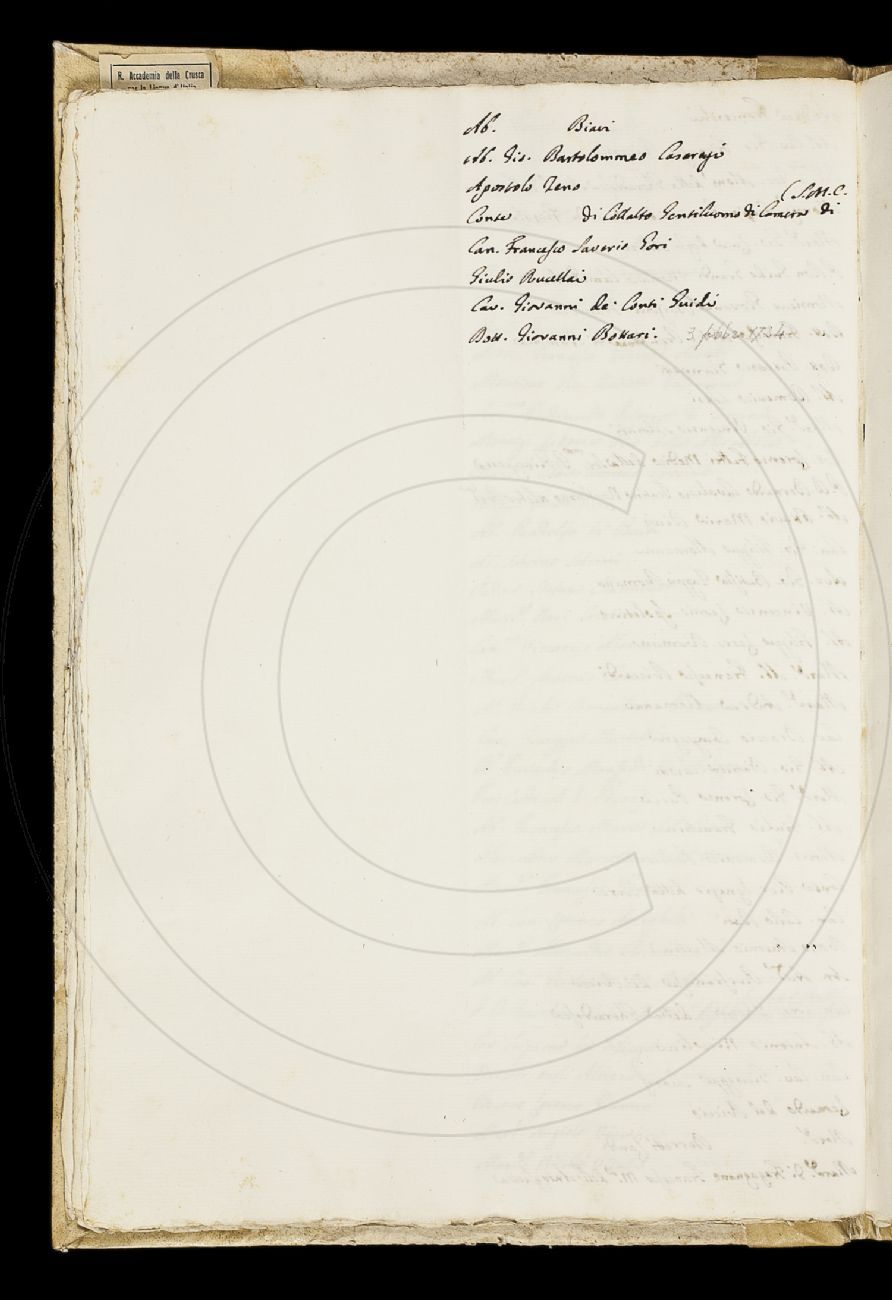 R. Accademia della Crusca
per la Lingua d'Italia
Ab. Biavi
Ab. Gio. Bartolommeo Casaregi
Apostolo Zeno
Conte di Collalto Gentiluomo di Camera di (S.M.C.
Can. Francesco Saverio Gori
Giulio Rucellai
Cav. Giovanni de' Conti Guidi
Bott. Giovanni Bottari. 3. febbraio 1734